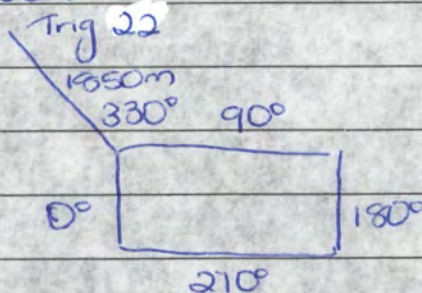 Trig 22
1850m
330° 90°
0° 180°
270°